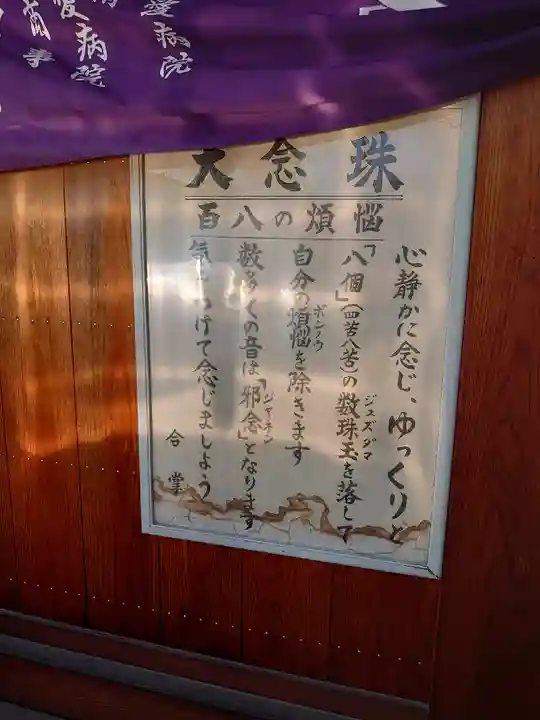 愛病院
愛病院
大念珠
百八の煩悩
心静かに念じ、ゆっくりと
「八個」(四苦八苦)の数珠玉を落して
ジュズダマ
自分の煩悩を除きます
ボンノウ
数多くの音は「邪念」となります
ジャネン
気をつけて念じましょう
合掌